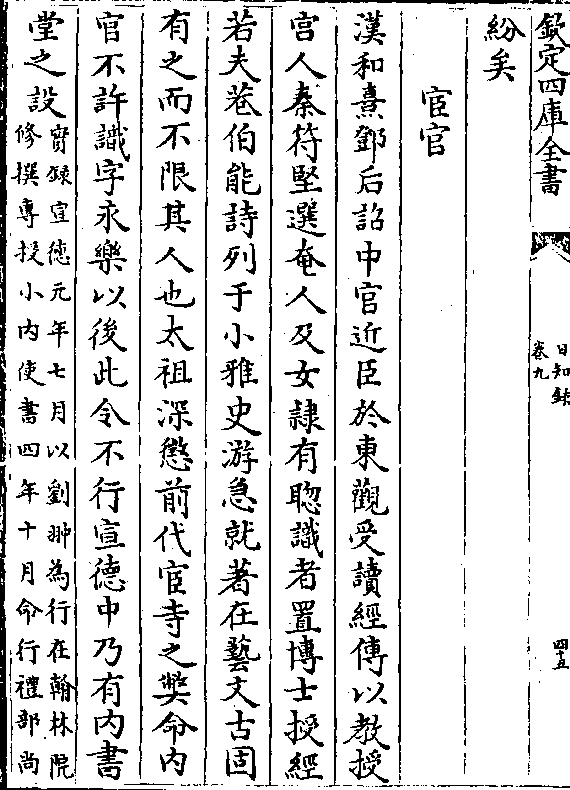 欽定四庫全書
日知錄
卷九
四五
紛矣
宦官
漢和熹鄧后詔中官近臣於東觀受讀經傳以教授
宫人秦苻堅選奄人及女隸有聰識者置博士授經
若夫巷伯能詩列于小雅史游急就著在藝文古固
有之而不限其人也太祖深懲前代宦寺之獘命内
官不許識字永樂以後此令不行宣德中乃有内書
堂之設實錄宣德元年七月以劉翀為行在翰林院
修撰專授小内使書四年十月命行禮部尚